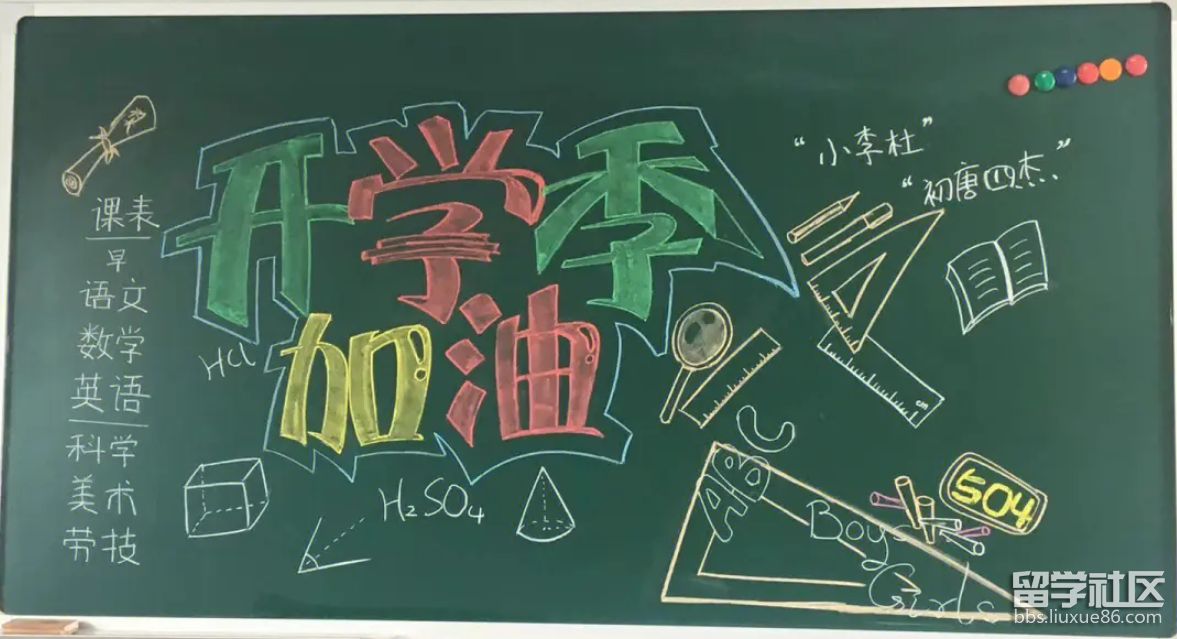 开学季
加油
课表
早
语文
数学
英语
科学
美术
劳技
HCl
H₂SO₄
“小李杜”
“初唐四杰”
cm
ABC
504
Boys
Girls
留学社区
bbs.liuxue86.com